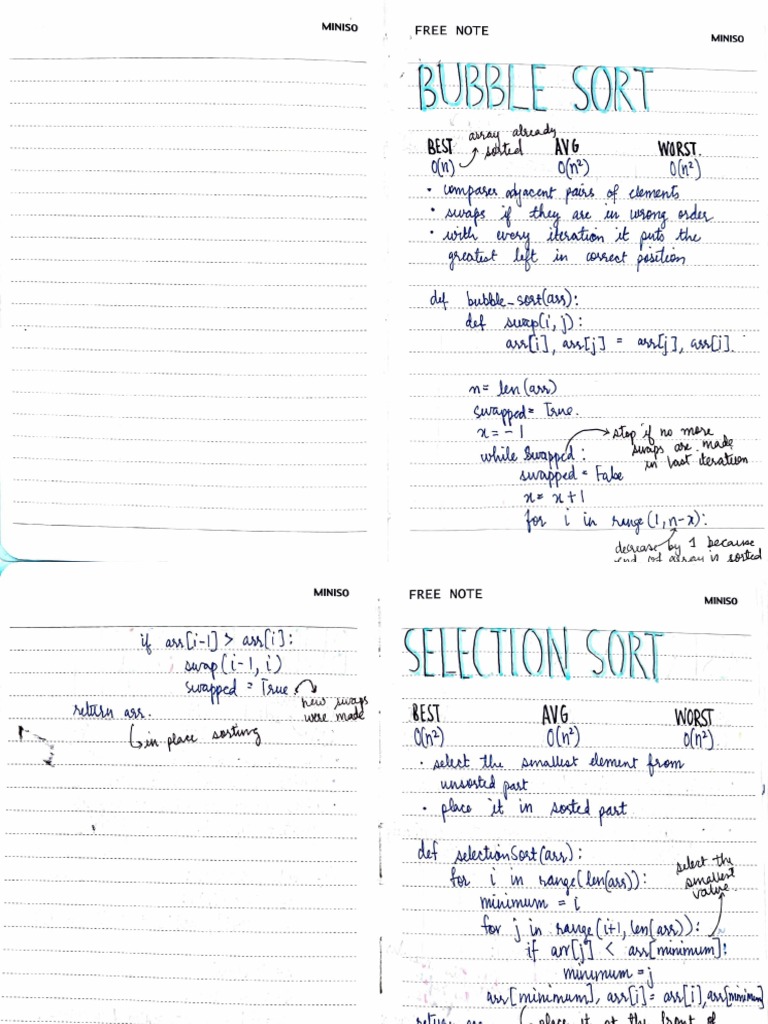 MINISO
FREE NOTE
MINISO
BUBBLE SORT
array already
sorted
BEST AVG WORST
O(n) O(n²) O(n²)
• compares adjacent pairs of elements
• swaps if they are in wrong order
• with every iteration it puts the
greatest left in correct position
def bubble_sort(arr):
def swap(i, j):
arr[i], arr[j] = arr[j], arr[i].
n = len(arr)
swapped = True.
x = -1
while swapped:
stop if no more
swaps are made
in last iteration
swapped = False
x = x + 1
for i in range(1, n-x):
decrease by 1 because
end of array is sorted
MINISO
if arr[i-1] > arr[i]:
swap(i-1, i)
swapped = True.
new swaps
were made
return arr.
in place sorting
FREE NOTE
MINISO
SELECTION SORT
BEST AVG WORST
O(n²) O(n²) O(n²)
• select the smallest element from
unsorted part
• place it in sorted part
def selectionSort(arr):
for i in range(len(arr)):
minimum = i
select the
smallest
value.
for j in range(i+1, len(arr)):
if arr[j] < arr[minimum]:
minimum = j
arr[minimum], arr[i] = arr[i], arr[minimum]
return arr
place it at the front of